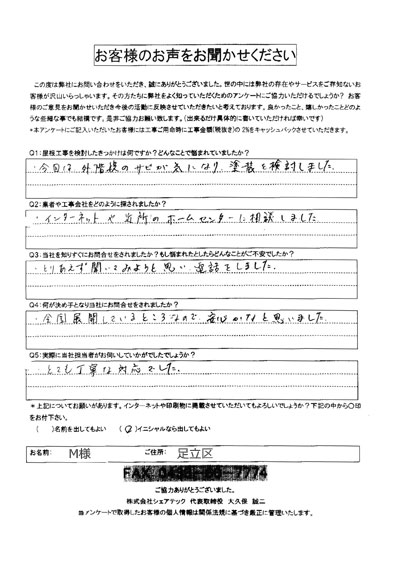 お客様のお声をお聞かせください
この度は弊社にお問い合わせをいただき、誠にありがとうございました。世の中には弊社の存在やサービスをご存知ないお
客様が沢山いらっしゃいます。その方たちに弊社をよく知っていただくためのアンケートにご協力いただけるでしょうか？お客
様のご意見をお聞かせいただき今後の活動に反映させていただきたいと考えております。良かったこと、嬉しかったことどのよ
うな些細な事でも結構です、是非ご協力お願い致します。(出来るだけ具体的に書いていただければ幸いです)
*本アンケートにご記入いただいたお客様には工事ご用命時に工事金額(税抜き)の2%をキャッシュバックさせていただきます。
Q1:屋根工事を検討したきっかけは何ですか？どんなことで悩まれていましたか？
・今回は外階段のサビが気になり、塗装を検討しました。
Q2:業者や工事会社をどのように探されましたか？
・インターネットや近所のホームセンターに相談しました
Q3:当社を知りすぐにお問合せをされましたか？もし悩まれたとしたらどんなことがご不安でしたか？
・とりあえず聞いてみようと思い、電話をしました。
Q4:何が決め手となり当社にお問合せをされましたか？
・全国展開しているところなので、安心かなと思いました。
Q5:実際に当社担当者がお伺いしていかがでしたでしょうか？
・とても丁寧な対応でした。
*上記についてお願いがあります。インターネットや印刷物に掲載させていただいてもよろしいでしょうか？下記の中から〇印
をお付け下さい。
( )名前を出してもよい (〇)イニシャルなら出してもよい
お名前: M様 ご住所: 足立区
ご協力ありがとうございました。
株式会社シェアテック 代表取締役 大久保 誠二
当アンケートで取得したお客様の個人情報は関係法規に基づき厳正に管理いたします。